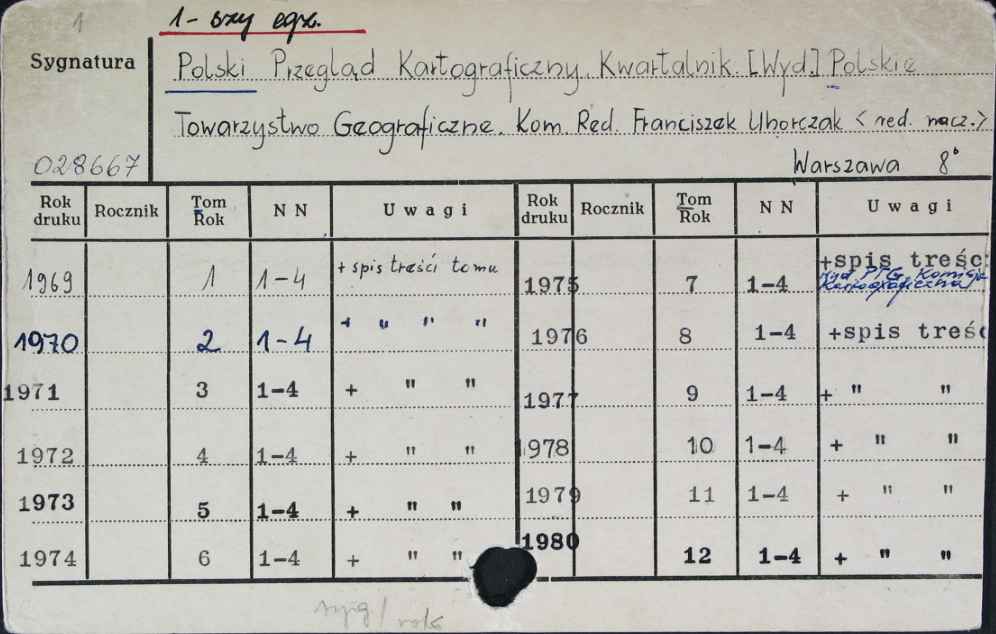 1
1-szy egz.
Sygnatura
Polski Przegląd Kartograficzny. Kwartalnik. [Wyd.] Polskie
Towarzystwo Geograficzne. Kom. Red. Franciszek Uhorczak <red. nacz.>
028667 Warszawa 8°
Rok druku Rocznik Tom Rok NN Uwagi Rok druku Rocznik Tom Rok NN Uwagi
1969 1 1-4 + spis treści tomu 1975 7 1-4 +spis treści
wyd PTG, Komisja Kartograficzna
1970 2 1-4 + " " " 1976 8 1-4 +spis treśc
1971 3 1-4 + " " 1977 9 1-4 + " "
1972 4 1-4 + " " 1978 10 1-4 + " "
1973 5 1-4 + " " 1979 11 1-4 + " "
1974 6 1-4 + " " 1980 12 1-4 + " "
syg/rok